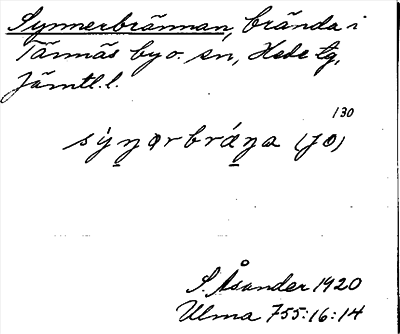 Synnerbrännan, brända i
Tännäs by o. sn, Hede tg,
Jämtl. l.
130
sy̱ṉərbrá̱ṉa (jo)
S. Åsander 1920
Ulma 755:16:14